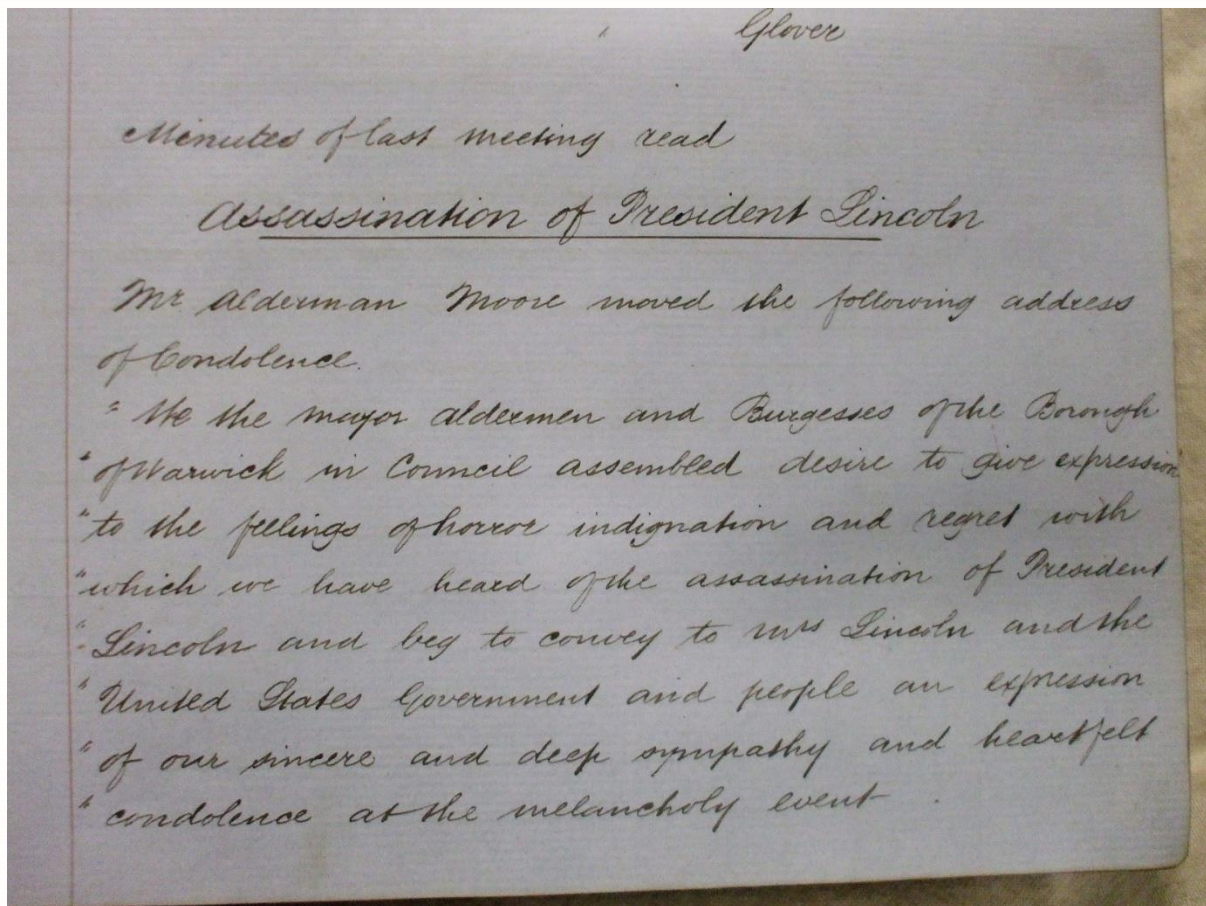 " Glover
Minutes of last meeting read
Assassination of President Lincoln
Mr Alderman Moore moved the following address
of Condolence.
" We the mayor aldermen and Burgesses of the Borough
" of Warwick in Council assembled desire to give expression
" to the feelings of horror indignation and regret with
" which we have heard of the assassination of President
" Lincoln and beg to convey to Mrs Lincoln and the
" United States Government and people an expression
" of our sincere and deep sympathy and heartfelt
" condolence at the melancholy event .